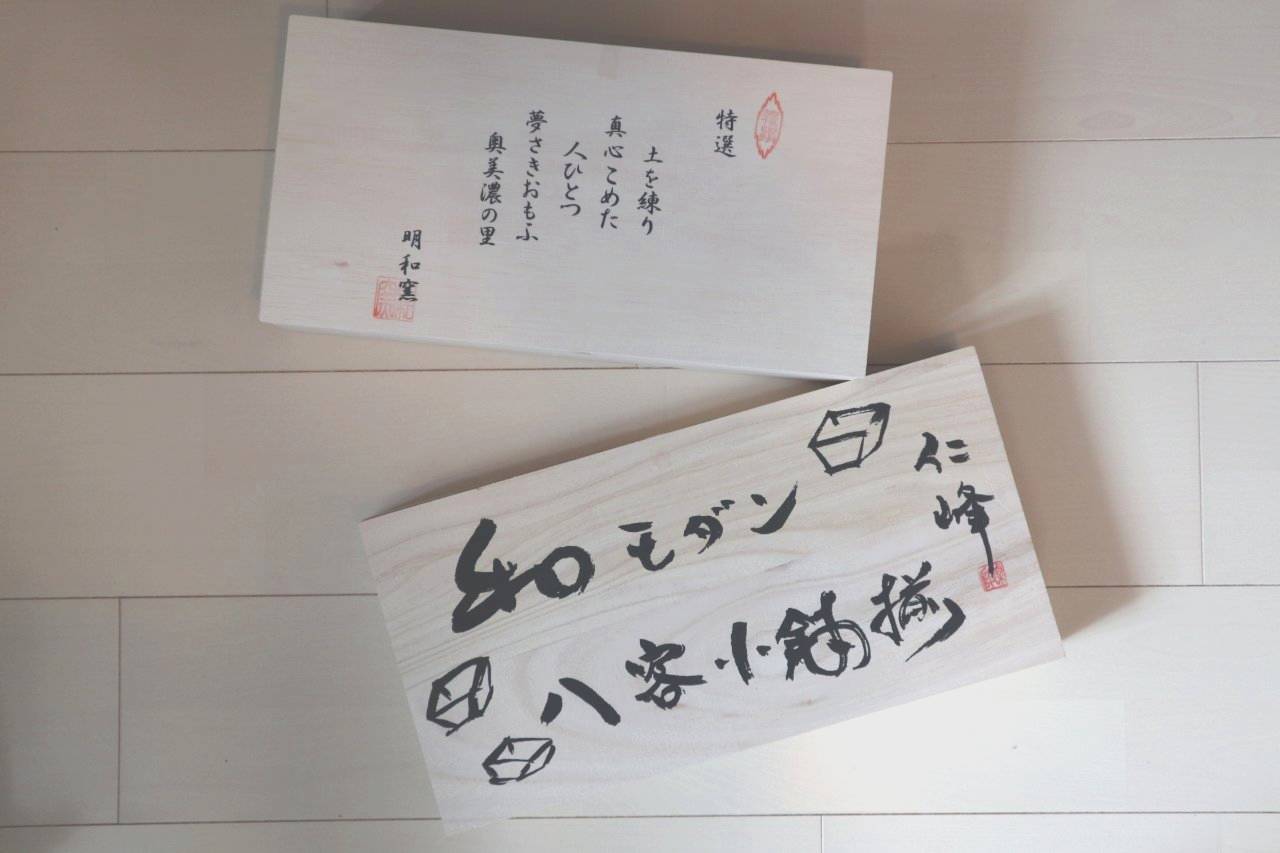 特選
土を練り
真心こめた
人ひとつ
夢さきおもふ
奥美濃の里
明和窯
和モダン
八客小鉢揃
仁峰